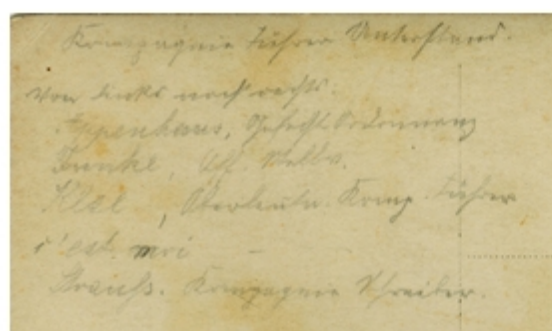 Kompagnie Führer Unterstand.
Von links nach rechts:
Appenhaus, Gefechts Ordonnanz
Funke, Off. Stellv.
Klee, Oberleutn. Komp. Führer
c'est moi —
Strauß. Kompagnie Schreiber.